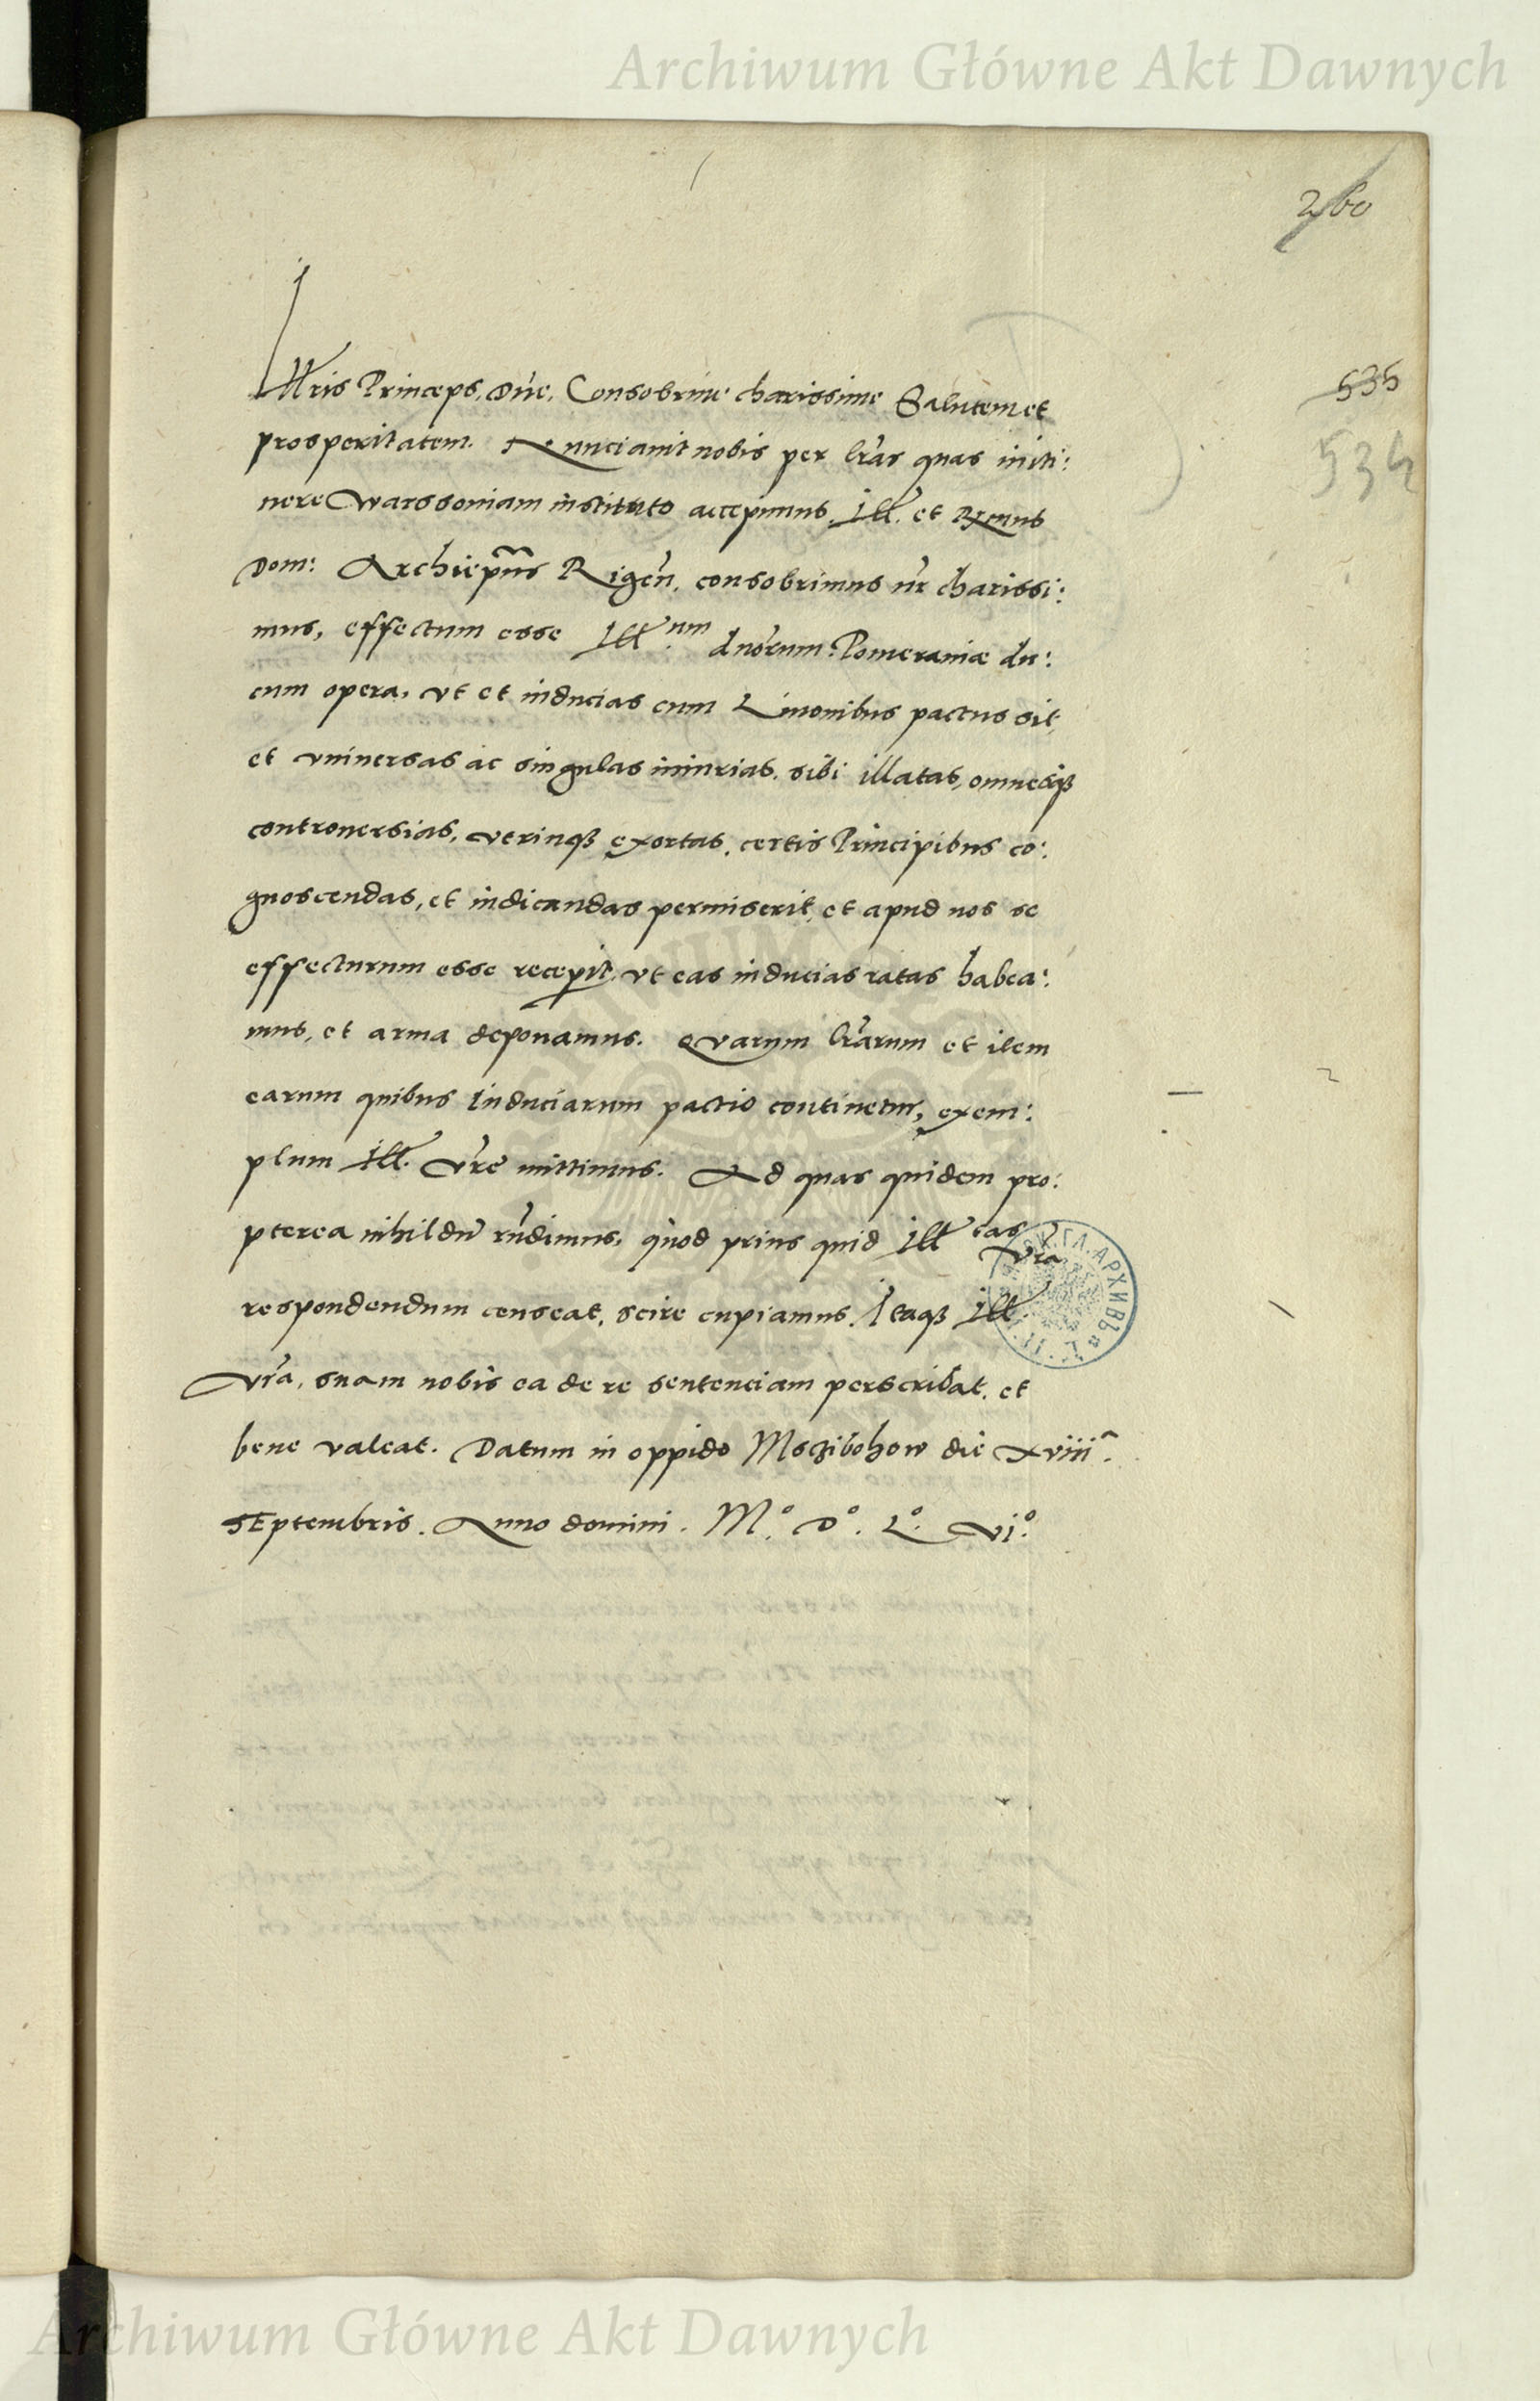 Archiwum Główne Akt Dawnych
260
535
534
Illris Princeps, Dne, Consobrine charissime Salutem et
prosperitatem. Nunciauit nobis per lras quas in iti:
nere Warssouiam instituto accepimus, Ill. et Rxmus
Dom: Archiepus Rigen, consobrinus nr charissi:
mus, effectum esse Ill um dnorum Pomeraniæ du:
cum opera, vt et inducias cum Liuonibus pactus sit,
et vniuersas ac singulas iniurias, sibi illatas, omnesq
controuersias, vtrinq exortas, certis Principibus co:
gnoscendas, et iudicandas permiserit, et apud nos se
effecturum esse recepit, vt eas inducias ratas habea:
mus, et arma deponamus. Quarum lrarum et item
earum quibus Induciarum pactio continetur, exem:
plum Ill. Vre mittimus. Ad quas quidem pro:
pterea nihildu rndimus, quod prius quid Ill tas Vra
respondendum censeat, scire cupiamus. Itaq Ill.
Vra, suam nobis ea de re sentenciam perscribat, et
bene valeat. Datum in oppido Msczibohow die xviii a.
SEptembris. Anno domini. M.o D.o L.o Vi.o
Archiwum Główne Akt Dawnych